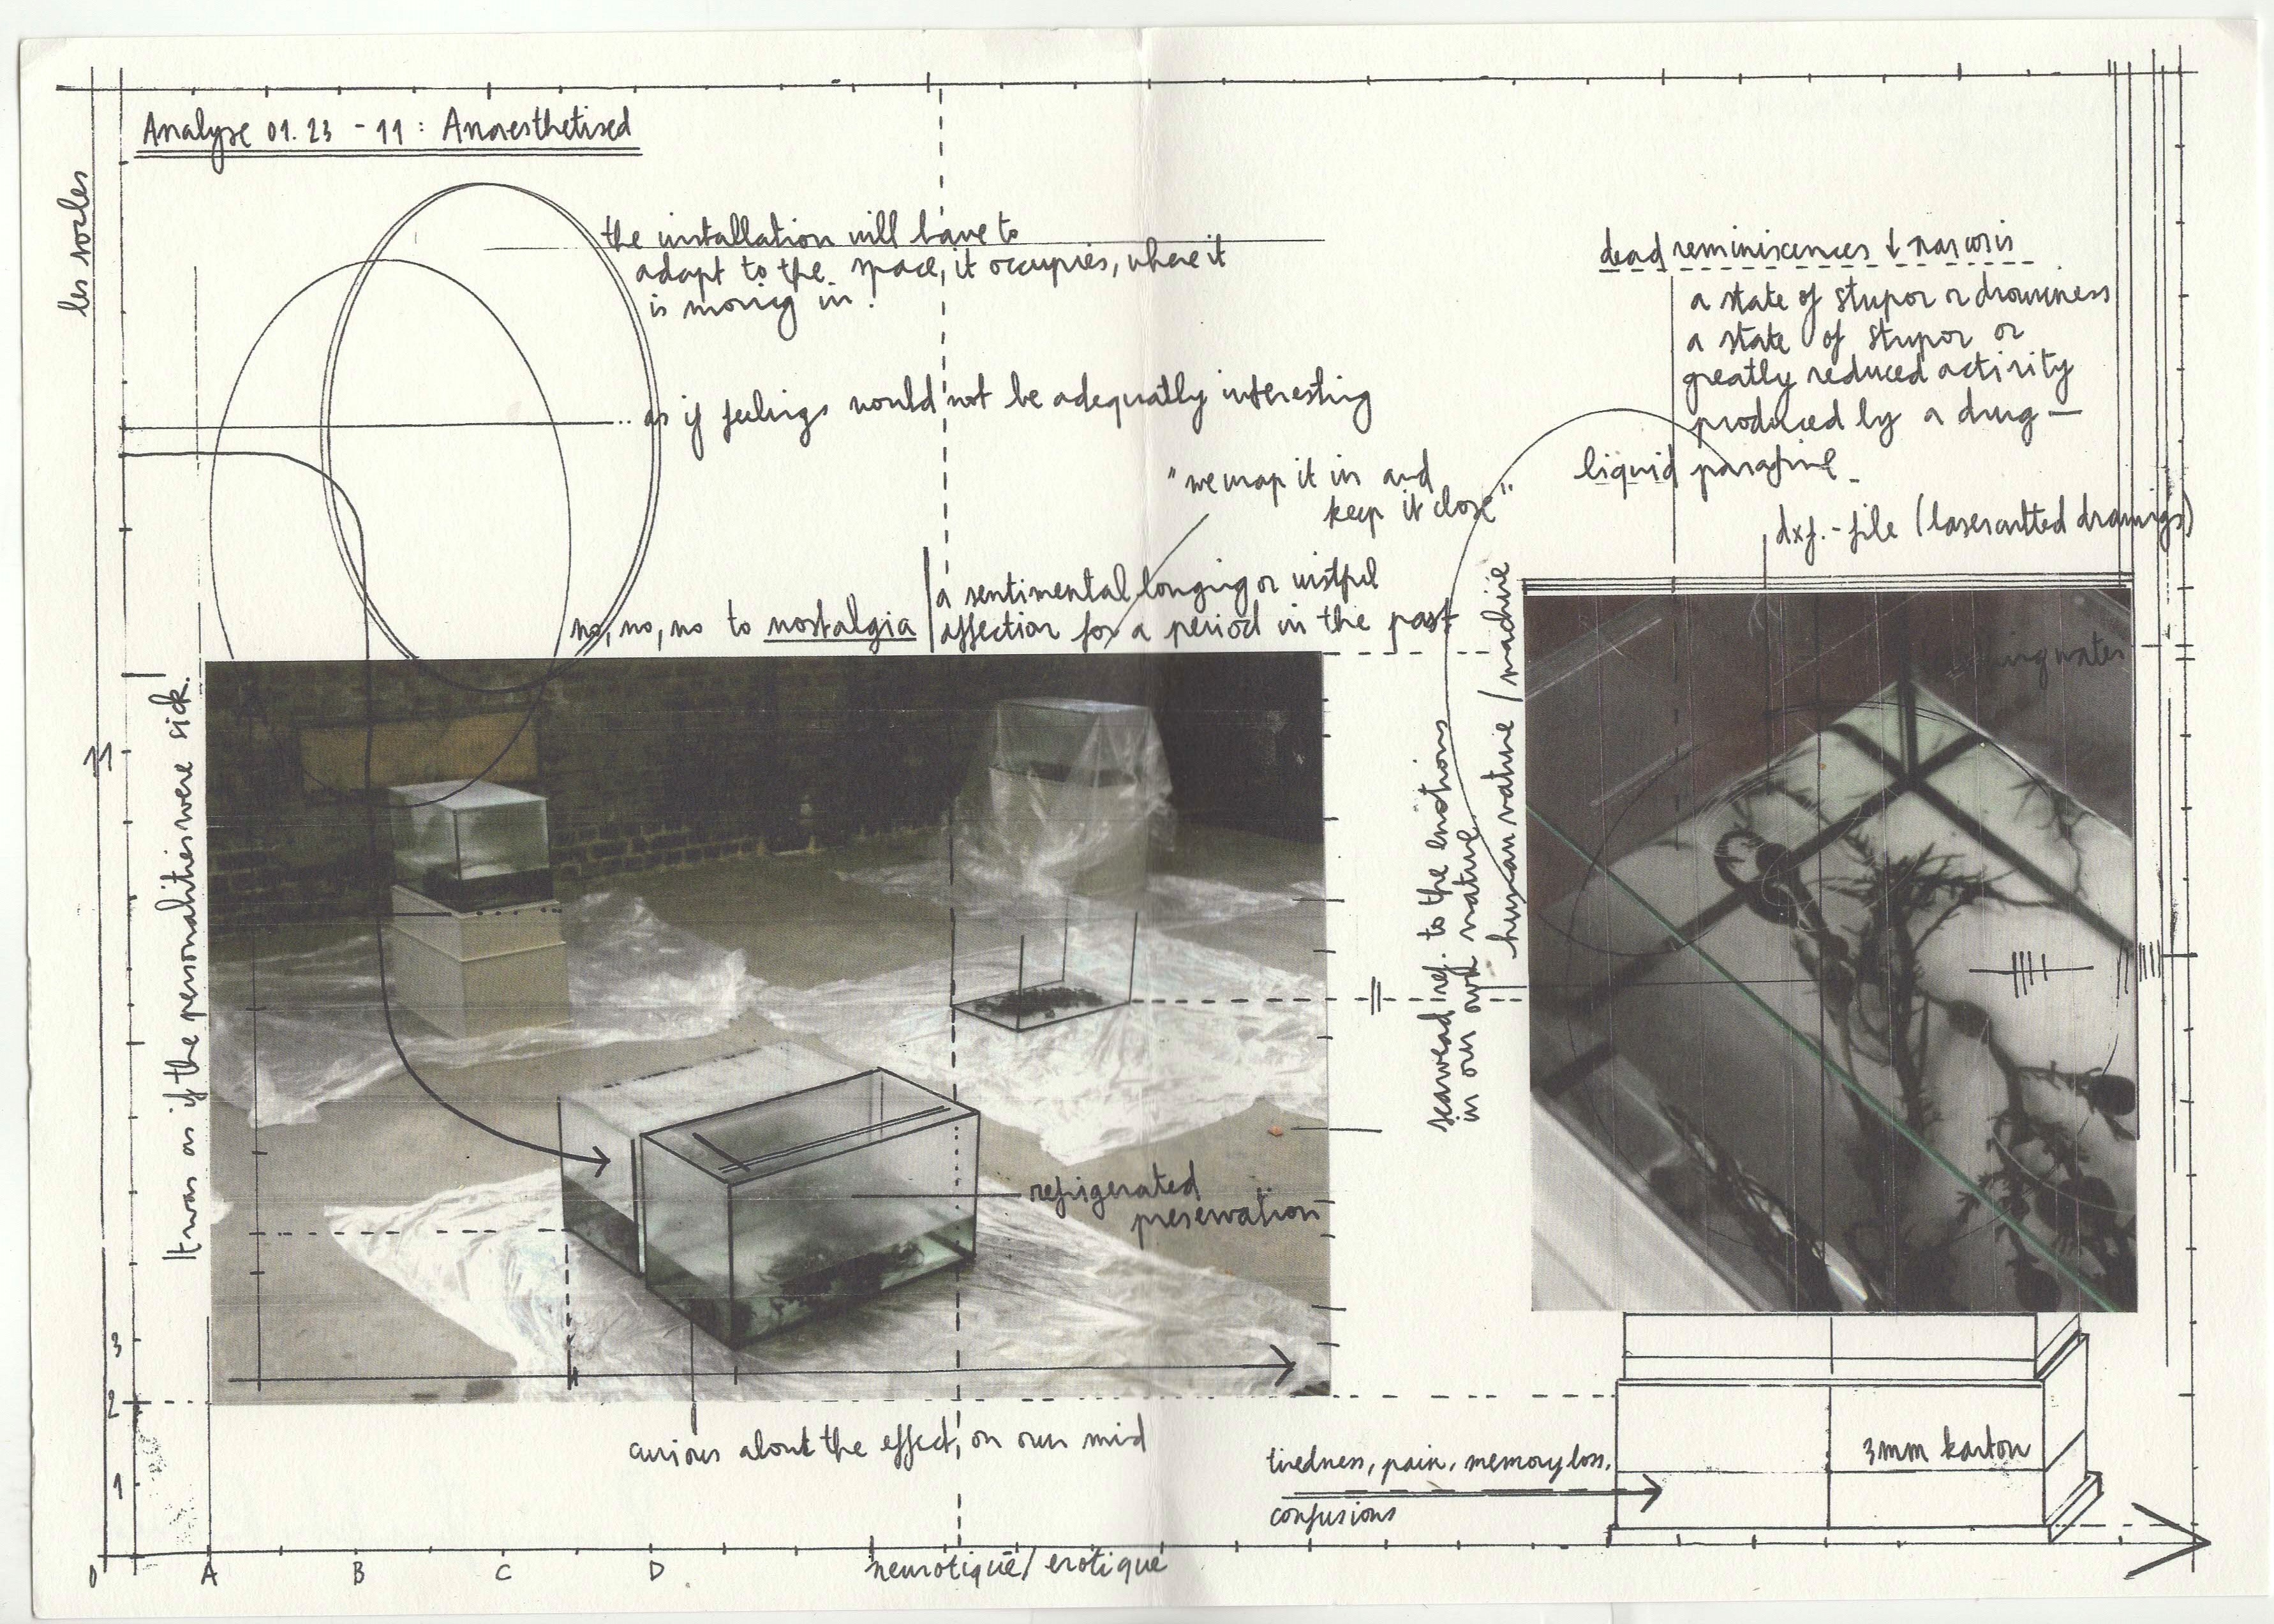 Analyse 01.23 - 11 : Anaesthetised
les socles
the installation will have to
adapt to the space, it occupies, where it
is moving in!
.. as if feelings would not be adequatly interesting
"we wrap it in and
keep it close"
no, no, no to nostalgia
a sentimental longing or wistful
affection for a period in the past
dead reminiscences & narcosis
a state of stupor or drowsiness
a state of stupor or
greatly reduced activity
produced by a drug —
liquid parafine
dxf.-file (lasercutted drawings)
water
It was as if the personalities were sick.
11
seaweed ref. to the emotions
in our own nature
human nature / machine
refrigerated
preservation
curious about the effect, on our mid
tiredness, pain, memory loss,
confusions
3mm karton
3
2
1
0
A B C D
neurotique / erotique